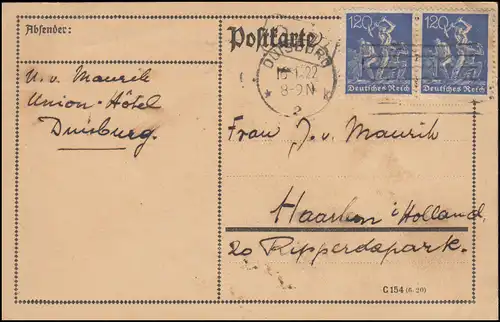 Absender:
Postkarte
120 120
Deutsches Reich Deutsches Reich
DUISBURG
22
8-9N
2
U. v. Maurik
Union-Hôtel
Duisburg.
Frau J. v. Maurik
Haarlem i/Holland
20 Ripperdapark.
C 154 (6. 20)